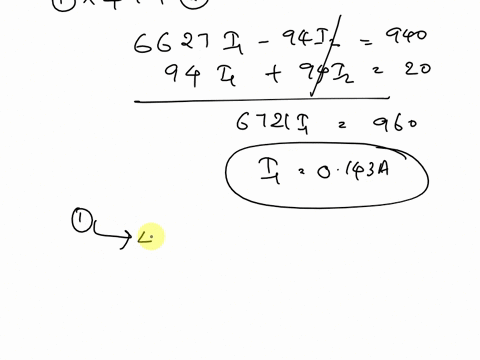 6627 I₁ - 94I₂ = 940
94 I₁ + 94I₂ = 20
6721I₁ = 960
I₁ = 0.143A
①